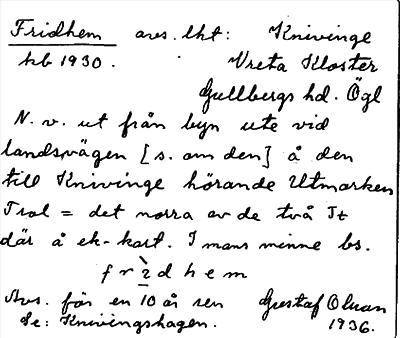 Fridhem avs. lht: Knivinge
kb 1930. Vreta Kloster
Gullbergs hd. Ögl
N. v. ut från byn ute vid
landsvägen [s. om den] å den
till Knivinge hörande Utmarken
Trol = det norra av de två Tt
där å ek-kart. I mans minne bs.
fr2dhem
Avs. för en 10 år sen Gustaf Olson
Se: Knivingshagen. 1936.